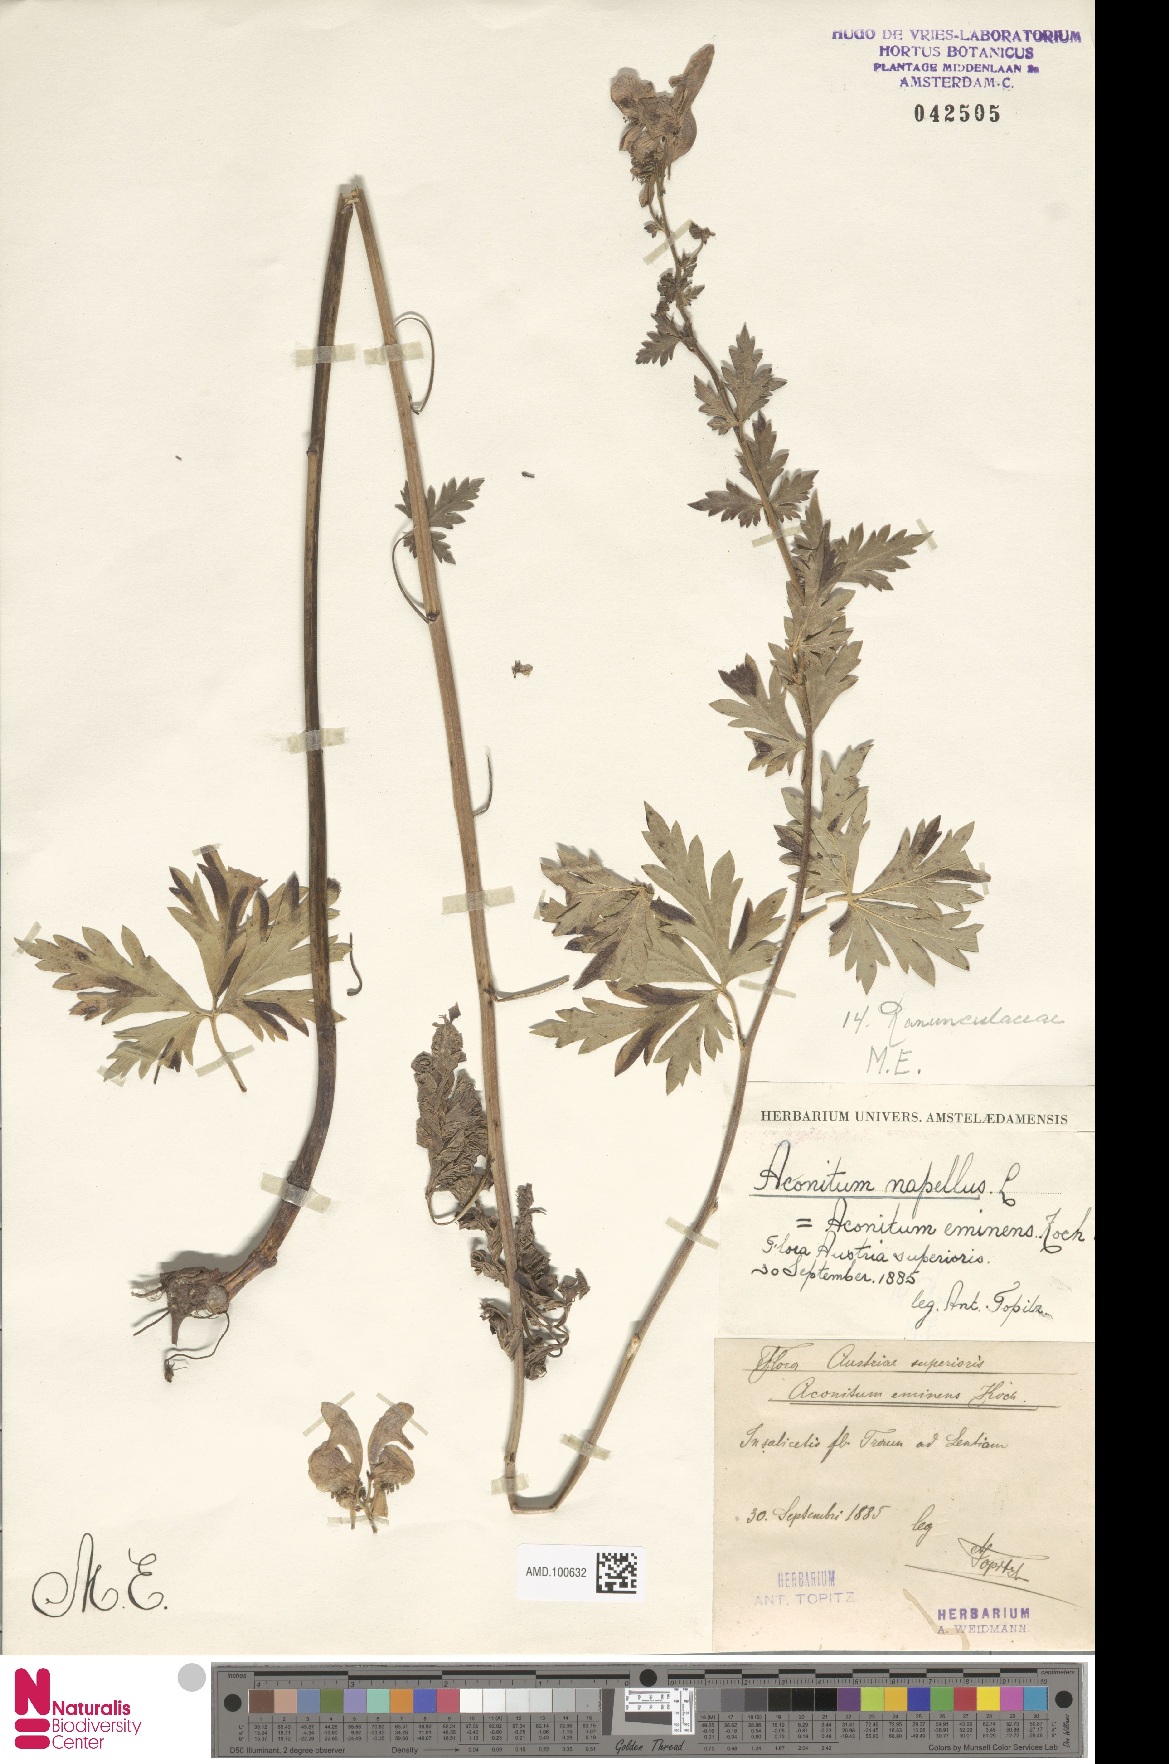 HUGO DE VRIES-LABORATORIUM
HORTUS BOTANICUS
PLANTAGE MIDDENLAAN 2a
AMSTERDAM-C.
042505
14. Ranunculaceae
M.E.
HERBARIUM UNIVERS. AMSTELÆDAMENSIS
Aconitum napellus. L
= Aconitum eminens. Koch.
Flora Austria superioris.
30 September. 1885
leg. Ant. Topitz
Flora Austriae superioris
Aconitum eminens Koch.
In salicetis fl. Traun ad Lentiam
30. Septembri 1885
leg
Topitz
HERBARIUM
ANT. TOPITZ
HERBARIUM
A. WEIDMANN.
AMD.100632
M.E.
Naturalis
Biodiversity
Center
inches
centimetres
D50 Illuminant, 2 degree observer
Density
Golden Thread
Colors by Munsell Color Services Lab